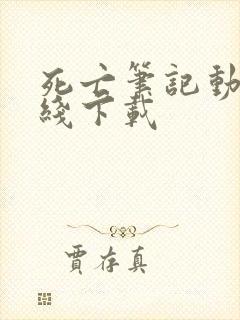 死亡筆記動
綫下載
賈存真